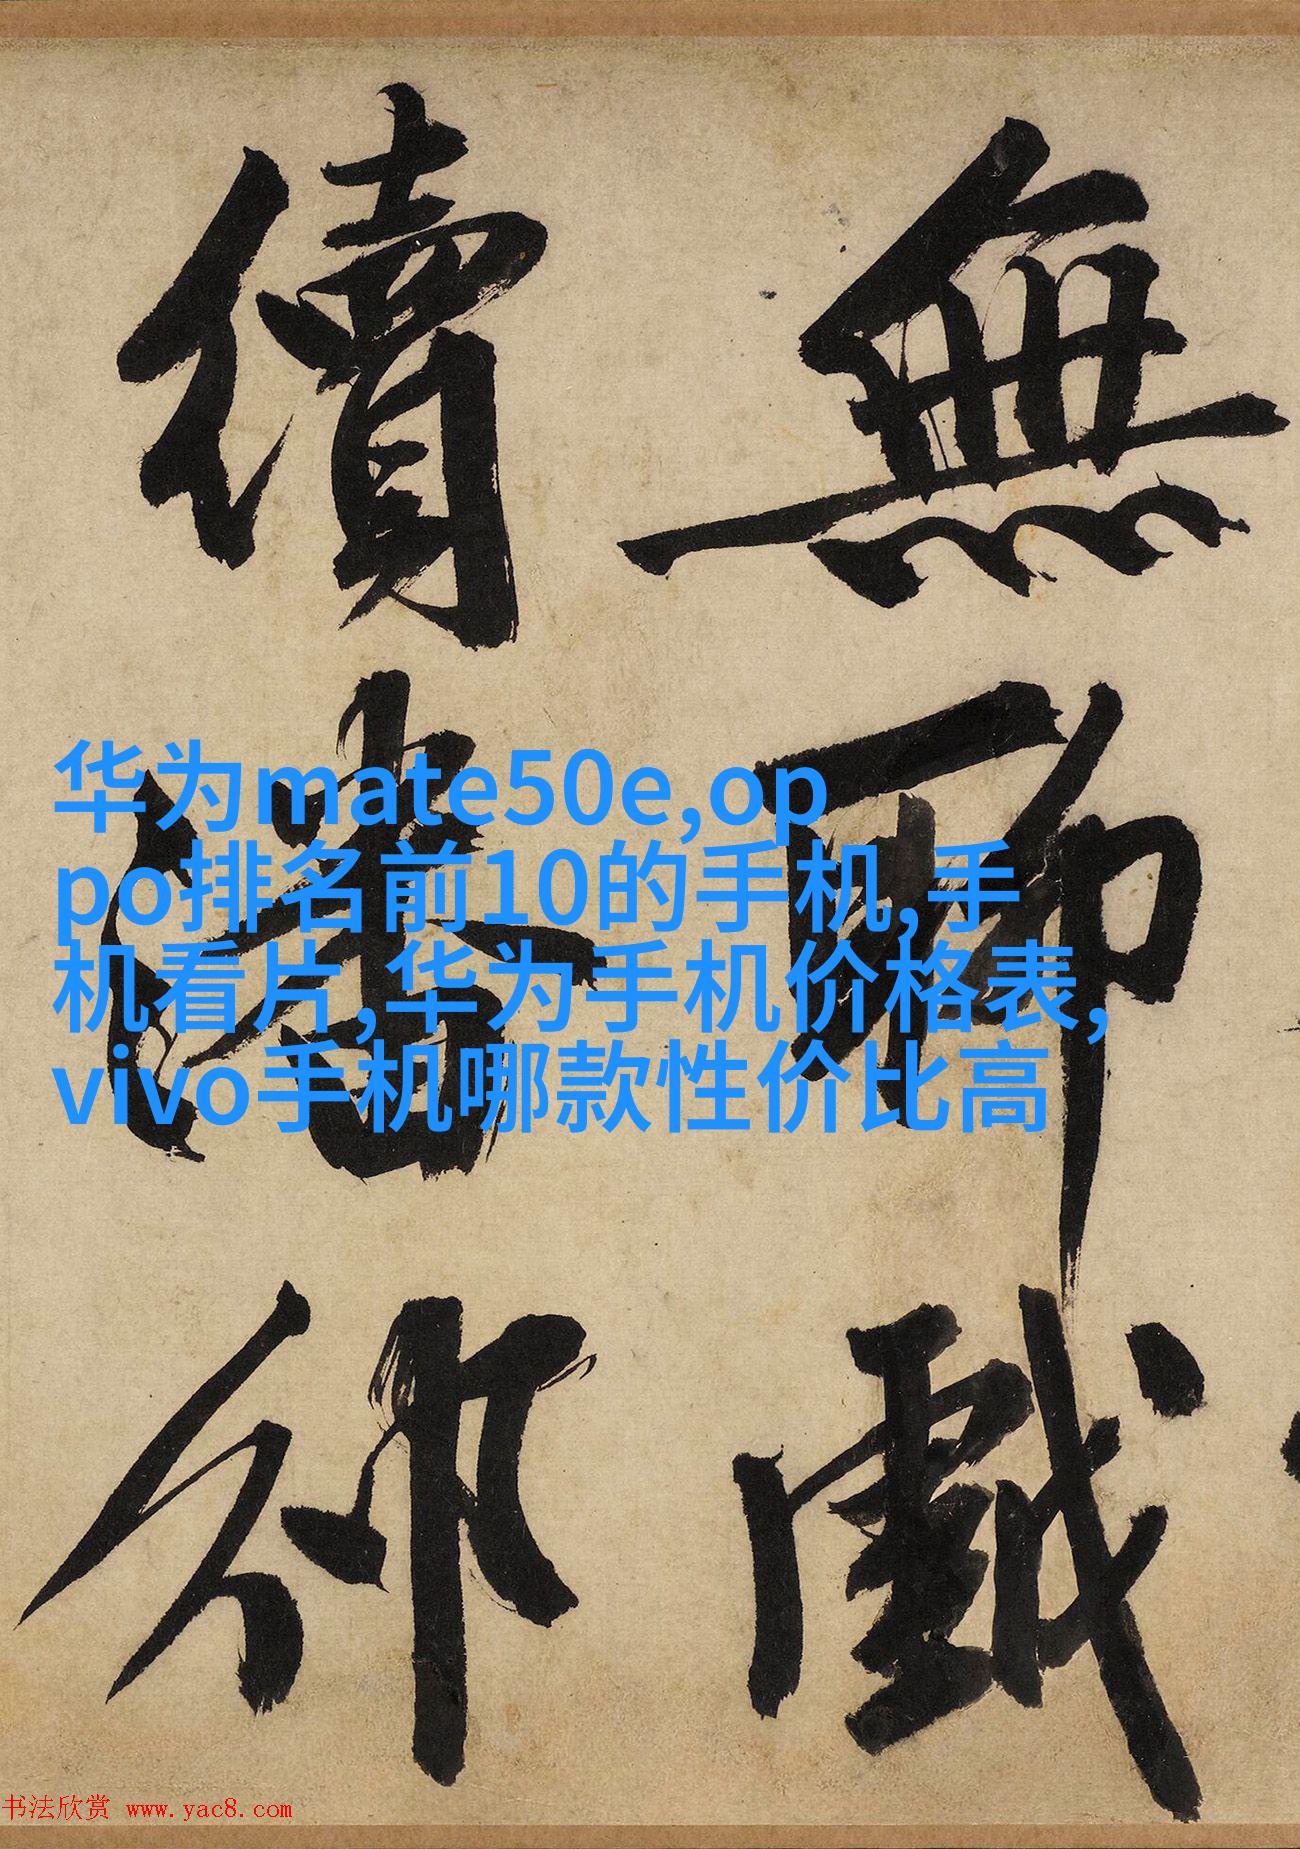 無聊戲
續潘邠
华为mate50e,op
po排名前10的手机,手
机看片,华为手机价格表,
vivo手机哪款性价比高
书法欣赏 www.yac8.com